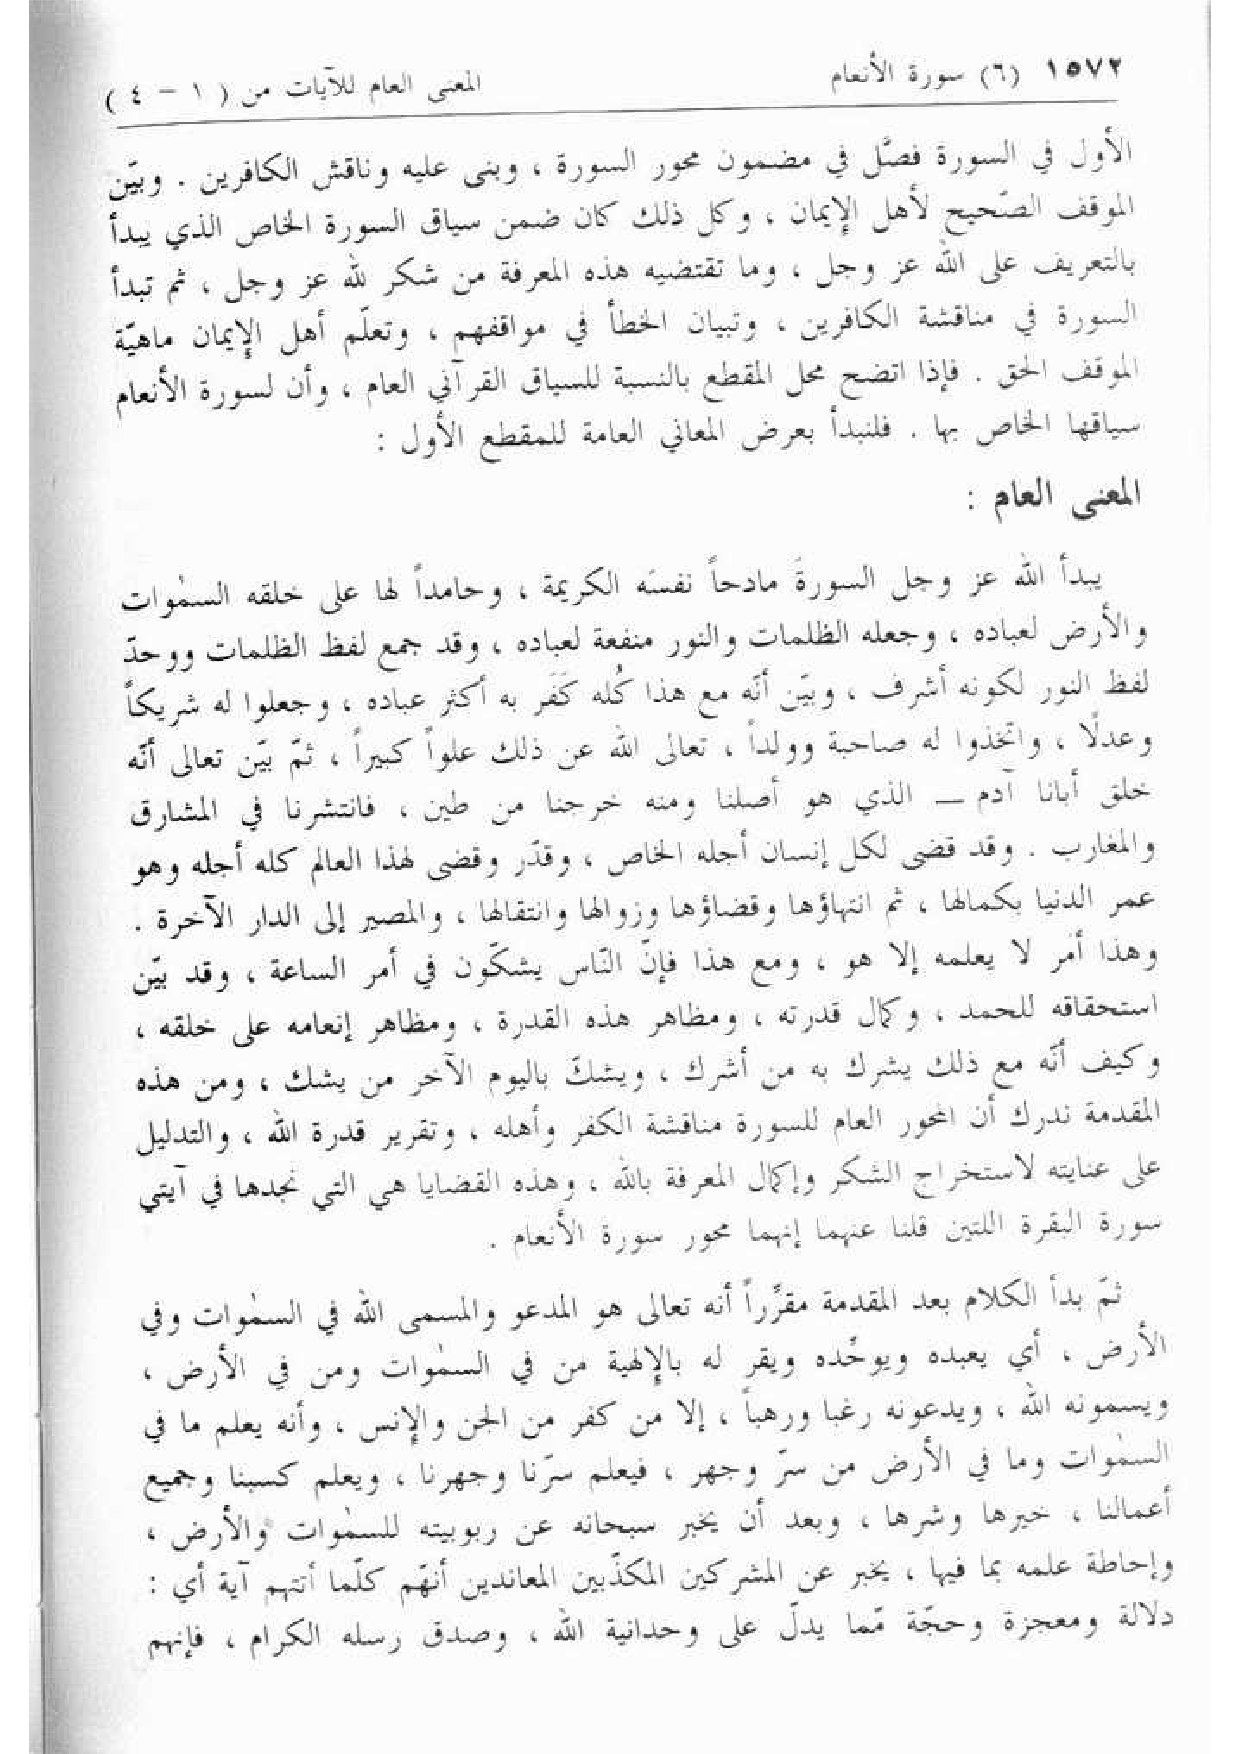 ١٥٧٢ (٦) سورة الأنعام المعنى العام للآيات من ( ١ – ٤ )
الأول في السورة فصَّل في مضمون محور السورة ، وبنى عليه وناقش الكافرين . وبيّن
الموقف الصّحيح لأهل الإيمان ، وكل ذلك كان ضمن سياق السورة الخاص الذي يبدأ
بالتعريف على الله عز وجل ، وما تقتضيه هذه المعرفة من شكر لله عز وجل ، ثم تبدأ
السورة في مناقشة الكافرين ، وتبيان الخطأ في مواقفهم ، وتعلّم أهل الإيمان ماهيّة
الموقف الحق . فإذا اتضح محل المقطع بالنسبة للسياق القرآني العام ، وأن لسورة الأنعام
سياقها الخاص بها . فلنبدأ بعرض المعاني العامة للمقطع الأول :
المعنى العام :
يبدأ الله عز وجل السورةَ مادحاً نفسَه الكريمة ، وحامداً لها على خلقه السمٰوات
والأرض لعباده ، وجعله الظلمات والنور منفعة لعباده ، وقد جمع لفظ الظلمات ووحدّ
لفظ النور لكونه أشرف ، وبيّن أنّه مع هذا كُله كَفَر به أكثر عباده ، وجعلوا له شريكاً
وعدلًا ، واتّخذوا له صاحبة وولداً ، تعالى الله عن ذلك علواً كبيراً ، ثمّ بيّن تعالى أنّه
خلق أبانا آدم — الذي هو أصلنا ومنه خرجنا من طين ، فانتشرنا في المشارق
والمغارب . وقد قضى لكل إنسان أجله الخاص ، وقدّر وقضى لهذا العالم كله أجله وهو
عمر الدنيا بكمالها ، ثم انتهاؤها وقضاؤها وزوالها وانتقالها ، والمصير إلى الدار الآخرة .
وهذا أمر لا يعلمه إلا هو ، ومع هذا فإنّ النّاس يشكّون في أمر الساعة ، وقد بيّن
استحقاقه للحمد ، وكمال قدرته ، ومظاهر هذه القدرة ، ومظاهر إنعامه على خلقه ،
وكيف أنّه مع ذلك يشرك به من أشرك ، ويشكّ باليوم الآخر من يشك ، ومن هذه
المقدمة ندرك أن المحور العام للسورة مناقشة الكفر وأهله ، وتقرير قدرة الله ، والتدليل
على عنايته لاستخراج الشكر وإكمال المعرفة بالله ، وهذه القضايا هي التي نجدها في آيتي
سورة البقرة اللتين قلنا عنهما إنهما محور سورة الأنعام .
ثمّ بدأ الكلام بعد المقدمة مقرِّراً أنه تعالى هو المدعو والمسمى الله في السمٰوات وفي
الأرض ، أي يعبده ويوحِّده ويقر له بالإلهية من في السمٰوات ومن في الأرض ،
ويسمونه الله ، ويدعونه رغبا ورهباً ، إلا من كفر من الجن والإنس ، وأنه يعلم ما في
السمٰوات وما في الأرض من سرّ وجهر ، فيعلم سرّنا وجهرنا ، ويعلم كسبنا وجميع
أعمالنا ، خيرها وشرها ، وبعد أن يخبر سبحانه عن ربوبيته للسمٰوات والأرض ،
وإحاطة علمه بما فيها ، يخبر عن المشركين المكذّبين المعاندين أنهّم كلّما أتتهم آية أي :
دلالة ومعجزة وحجّة ممّا يدلّ على وحدانية الله ، وصدق رسله الكرام ، فإنهم